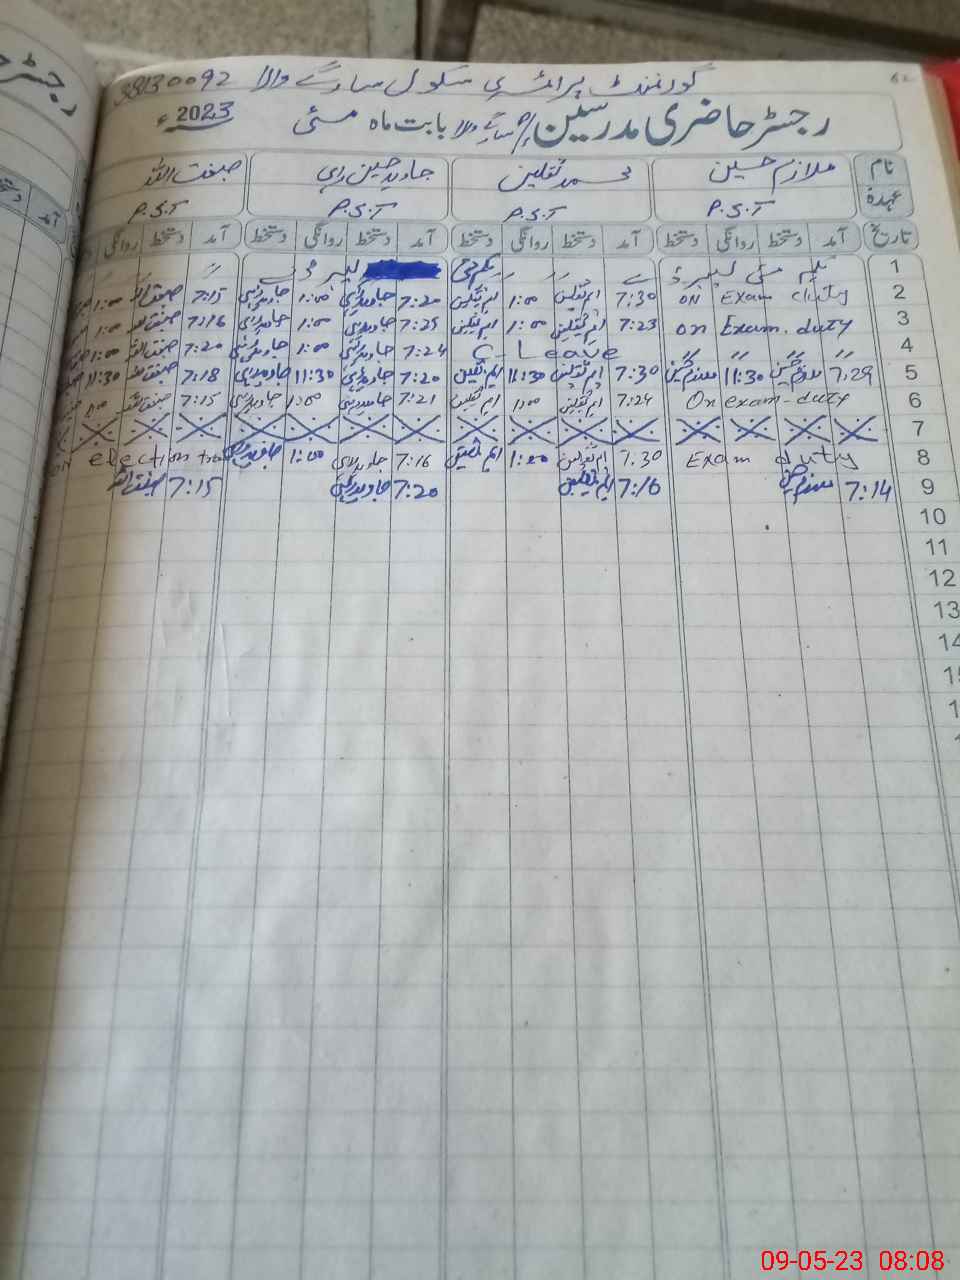 گورنمنٹ پرائمری سکول سارگے والا 38130092
62
رجسٹر حاضری مدرسین بابت ماہ مئی 2023ء
نام ملازم حسین محمد ثقلین جاوید حسین صبغت اللہ
عہدہ P.S.T P.S.T P.S.T P.S.T
تاریخ آمد دستخط روانگی دستخط آمد دستخط روانگی دستخط آمد دستخط روانگی دستخط آمد دستخط روانگی
آمد
رجسٹر
1 یکم مئی لیبر ڈے یکم مئی لیبر ڈے
2 on Exam duty 7:30 ایم ثقلین 1:00 ایم ثقلین 7:20 جاوید 1:00 جاوید 7:15 صبغت اللہ 1:00
3 on Exam. duty 7:23 ایم ثقلین 1:00 ایم ثقلین 7:25 جاوید 1:00 جاوید 7:16 صبغت اللہ 1:00
4 " " " " C-Leave 7:24 جاوید 1:00 جاوید 7:20 صبغت اللہ 1:00
5 7:29 11:30 7:30 ایم ثقلین 11:30 ایم ثقلین 7:20 جاوید 11:30 جاوید 7:18 صبغت اللہ 11:30
6 On exam-duty 7:24 ایم ثقلین 1:00 ایم ثقلین 7:21 جاوید 1:00 جاوید 7:15 صبغت اللہ 1:00
7
8 Exam duty 7:30 ایم ثقلین 1:00 ایم ثقلین 7:16 جاوید 1:00 جاوید on election
9 7:14 7:16 ایم ثقلین 7:20 جاوید 7:15 صبغت اللہ
10
11
12
13
14
09-05-23 08:08